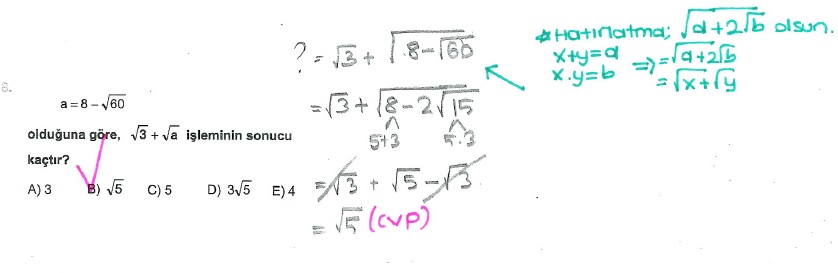 8.
a = 8 – √60
olduğuna göre, √3 + √a işleminin sonucu
kaçtır?
A) 3 B) √5 C) 5 D) 3√5 E) 4
? = √3 + √(8 – √60)
= √3 + √(8 – 2√15)
5+3 5.3
= √3 + √5 – √3
= √5 (cvp)
* Hatırlatma; √(a+2√b) olsun.
x+y=a
x.y=b
⇒ = √(a+2√b)
= √x + √y